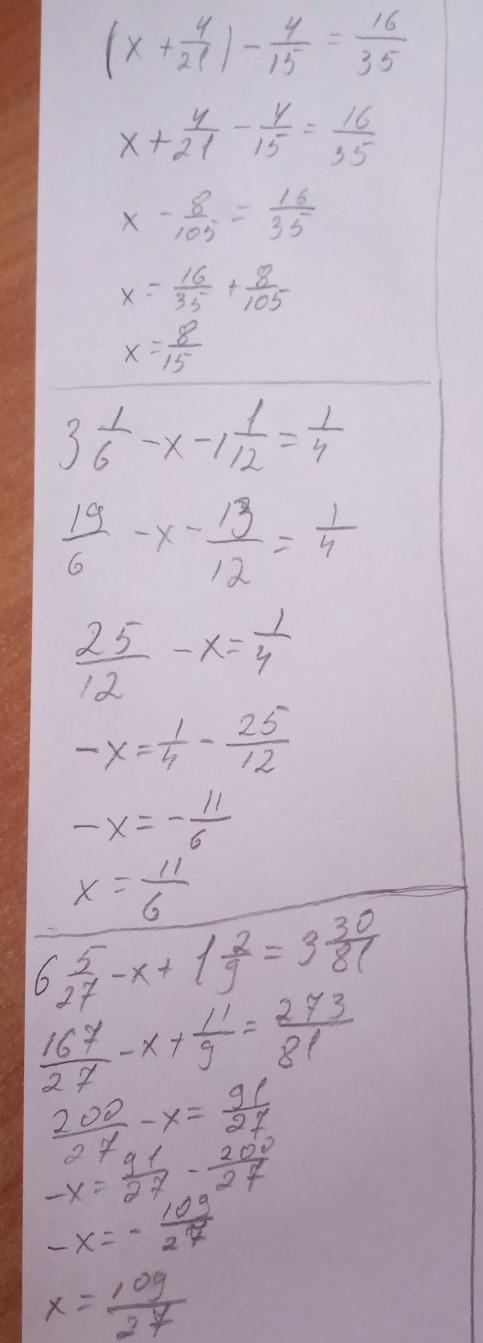 (x + 4/21) - 4/15 = 16/35
x + 4/21 - 4/15 = 16/35
x - 8/105 = 16/35
x = 16/35 + 8/105
x = 8/15
3 1/6 - x - 1 1/12 = 1/4
19/6 - x - 13/12 = 1/4
25/12 - x = 1/4
-x = 1/4 - 25/12
-x = - 11/6
x = 11/6
6 5/27 - x + 1 2/9 = 3 30/81
167/27 - x + 11/9 = 273/81
200/27 - x = 91/27
-x = 91/27 - 200/27
-x = - 109/27
x = 109/27